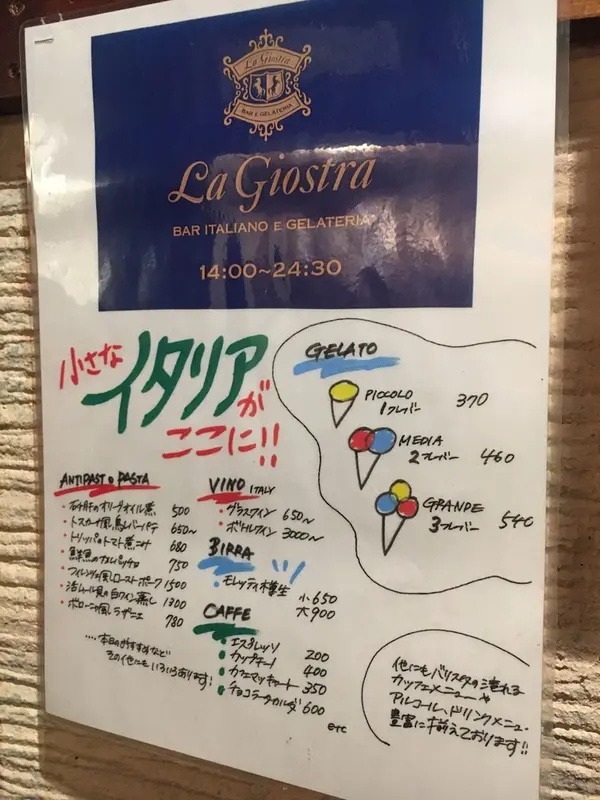 La Giostra
BAR E GELATERIA
La Giostra
BAR ITALIANO E GELATERIA
14:00~24:30
小さな
イタリアが
ここに!!
GELATO
PICCOLO
1フレーバー 370
MEDIA
2フレーバー 460
GRANDE
3フレーバー 540
ANTIPAST e PASTA
・砂肝のオリーブオイル煮 500
・トスカーナ風鳥レバーパテ 650~
・トリッパのトマト煮コミ 680
・鮮魚のカルパッチョ 750
・フィレンツェ風ローストポーク 1500
・活ムール貝の白ワイン蒸し 1300
・ボローニャ風ラザニエ 780
....本日のおすすめなど
その他にもいろいろあります!
VINO ITALY
・グラスワイン 650~
・ボトルワイン 3000~
BIRRA
・モレッティ樽生 小650
大900
CAFFE
・エスプレッソ 200
・カップチーノ 400
・カフェマッキャート 350
・チョコラータカルダ 600
etc
他にもバリスタの淹れる
カッフェメニューや
アルコール、ドリンクメニュー
豊富に揃えております!!